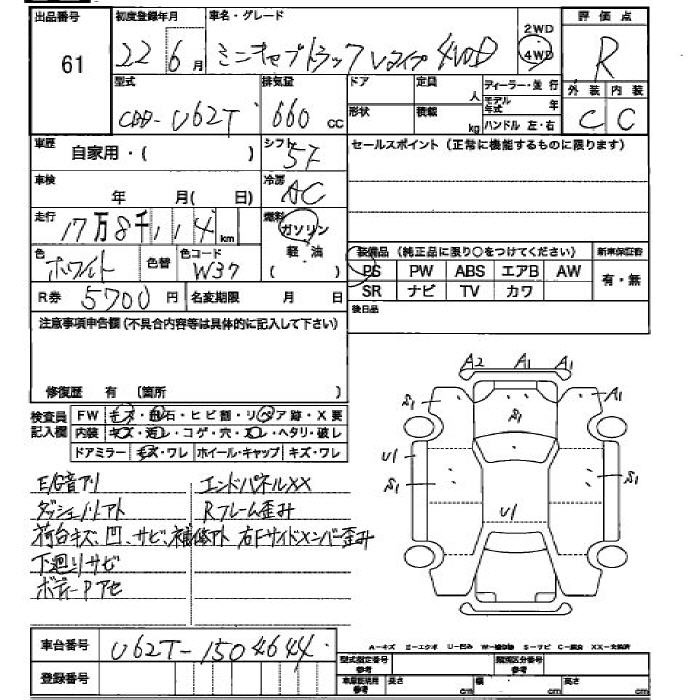 出品番号 61
初度登録年月 22 6月
車名・グレード ミニキャブトラック Vタイプ 4WD
2WD
4WD
評価点 R
外装 内装
C C
型式 EBD-U62T
排気量 660 cc
ドア 定員 人
形状 積載 kg
ディーラー・並行
モデル年式 年
ハンドル 左・右
車歴 自家用・( )
シフト 5F
セールスポイント (正常に機能するものに限ります)
車検 年 月( 日)
冷房 AC
走行 17万8千114km
燃料 ガソリン 軽・油 ( )
色 ホワイト 色替 色コード W37
装備品 (純正品に限り○をつけてください) 新車保証書
PS PW ABS エアB AW 有・無
SR ナビ TV カワ
R券 5700円 名変期限 月 日
後日品
注意事項申告欄 (不具合内容等は具体的に記入して下さい)
修復歴 有 (箇所 )
検査員記入欄
FW キズ・飛石・ヒビ割・リペア跡・X要
内装 キズ・汚レ・コゲ・穴・スレ・ヘタリ・破レ
ドアミラー キズ・ワレ ホイール・キャップ キズ・ワレ
A2 A1 A1
S1 S1 A1
U1
S1 S1
U1
E/G音アリ エンドパネルXX
ダッシュノリアト Rフレーム歪み
荷台キズ、凹、サビ、補修アト 右Fサイドメンバー歪み
下廻りサビ
ボデーPアセ
A-キズ E-エクボ U-凹み W-補修跡 S-サビ C-腐食 XX-交換済
車台番号 U62T-1504644
登録番号
型式指定番号 参考 類別区分番号 参考
車庫証明用 参考 長さ cm 幅 cm 高さ cm